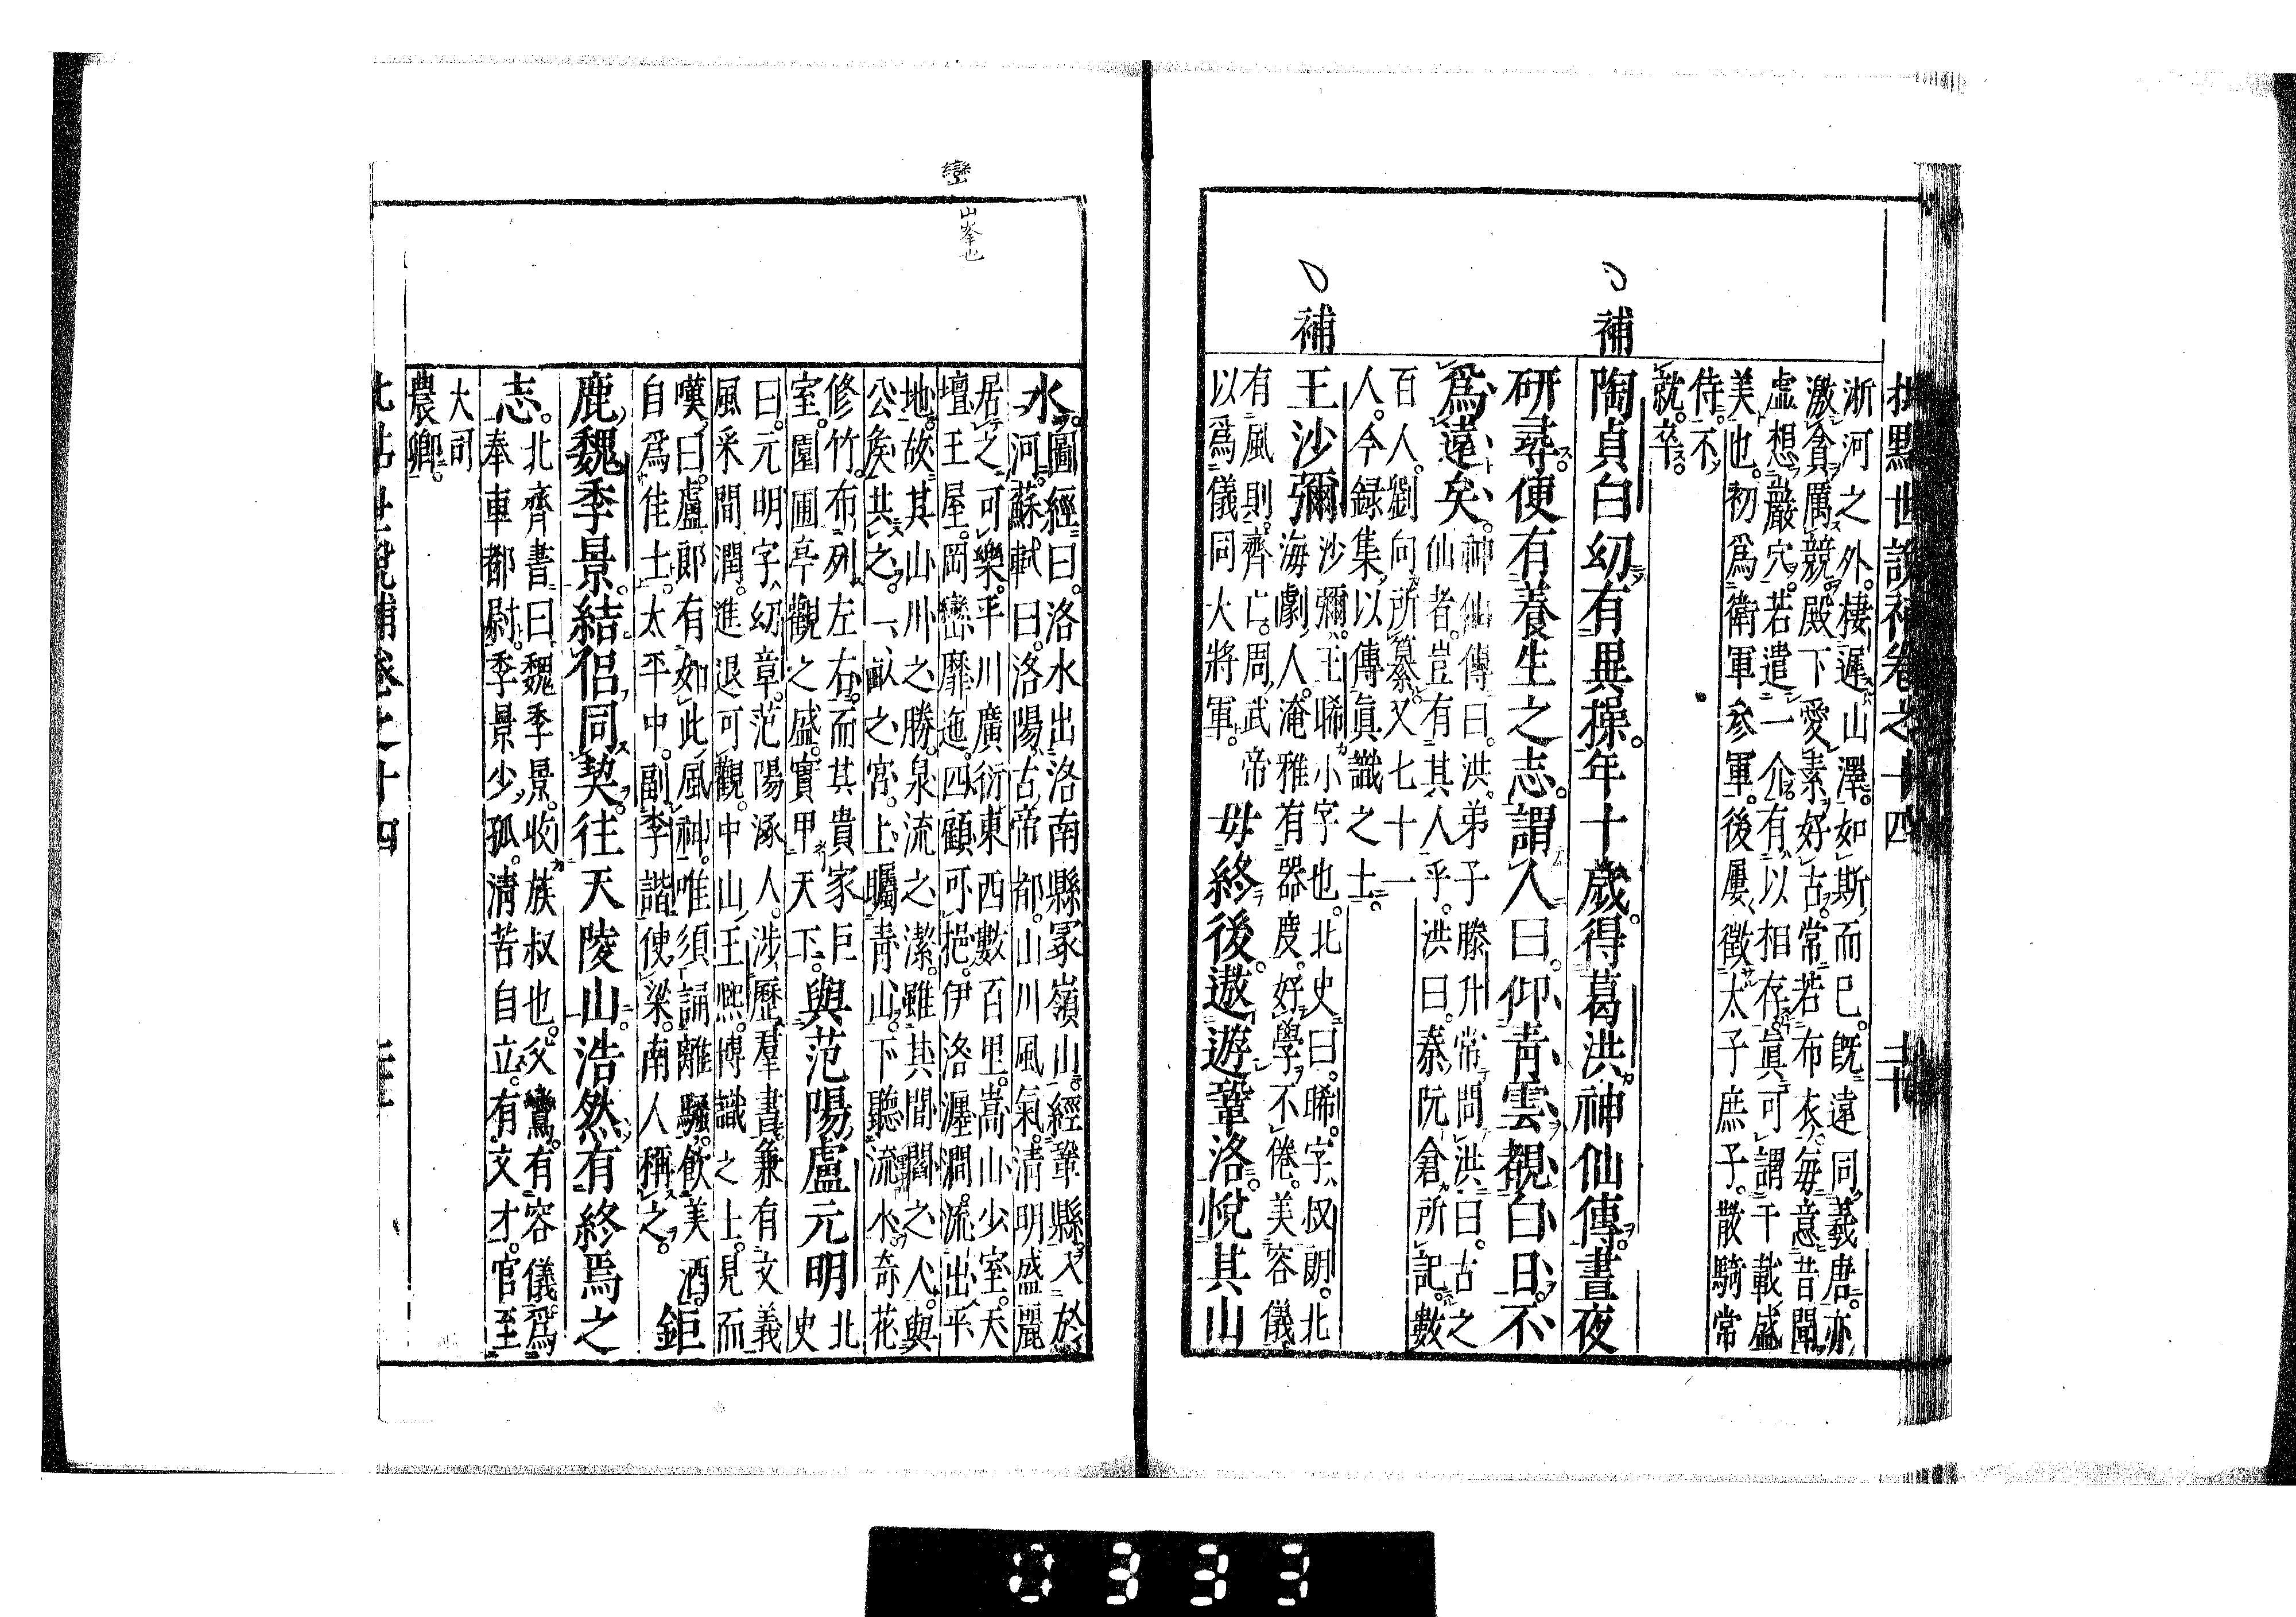 批點世說補卷之十四 二十
浙河之外棲遲山澤如斯而已旣遠同羲唐亦
激貪厲競殿下愛素好古常若布衣每意昔聞
虛想巖穴若遣一介有以相存眞可謂千載盛
美也初爲衛軍參軍後屢徵太子庶子散騎常
侍不
就卒
補
陶貞白幼有異操年十歲得葛洪神仙傳晝夜
研尋便有養生之志謂人曰仰青雲覩白日不
爲遠矣
神仙傳曰洪弟子滕升常問洪曰古之
仙者豈有其人乎洪曰秦阮倉所記數
百人劉向所篹又七十一
人今録集以傳眞識之士
補
王沙彌
沙彌王晞小字也北史曰晞字叔朗北
海劇人淹雅有器度好學不倦美容儀
有風則齊亡周武帝
以爲儀同大將軍
毋終後遨遊鞏洛悅其山
巒 山峯也
水
圖經曰洛水出洛南縣冢嶺山經鞏縣入於
河蘇軾曰洛陽古帝都山川風氣清明盛麗
居之可樂平川廣衍東西數百里嵩山少室天
壇王屋岡巒靡迤四顧可挹伊洛瀍澗流出平
地故其山川之勝泉流之潔雖其閭閻之人與
公矦共之一畝之宮上矚青山下聽流水奇花
修竹布列左右而其貴家巨
室園圃亭觀之盛實甲天下
與范陽盧元明
北
史
曰元明字幼章范陽涿人涉歷羣書兼有文義
風采閒潤進退可觀中山王熙博識之士見而
嘆曰盧郎有如此風神唯須誦離騷飲美酒
自爲佳士太平中副李諧使梁南人稱之
鉅
鹿魏季景結侶同契往天陵山浩然有終焉之
志
北齊書曰魏季景收族叔也父鸞有容儀爲
奉車都尉季景少孤清苦自立有文才官至
大司
農卿
批點世說補卷之十四
0333